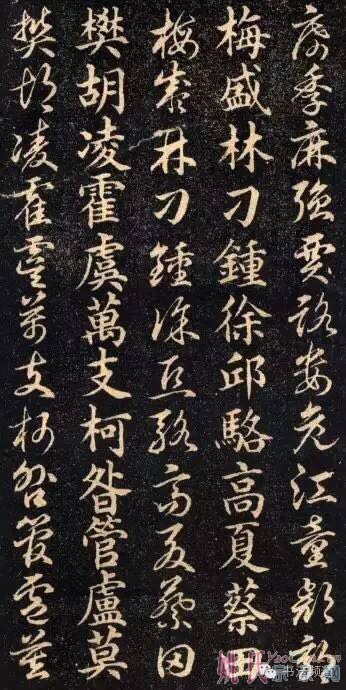 席季麻強賈路婁危江童顏郭
梅盛林刁鍾徐邱駱高夏蔡田
梅盛林刁鍾徐邱駱高夏蔡田
樊胡凌霍虞萬支柯昝管盧莫
樊胡凌霍虞萬支柯昝管盧莫
书法频道